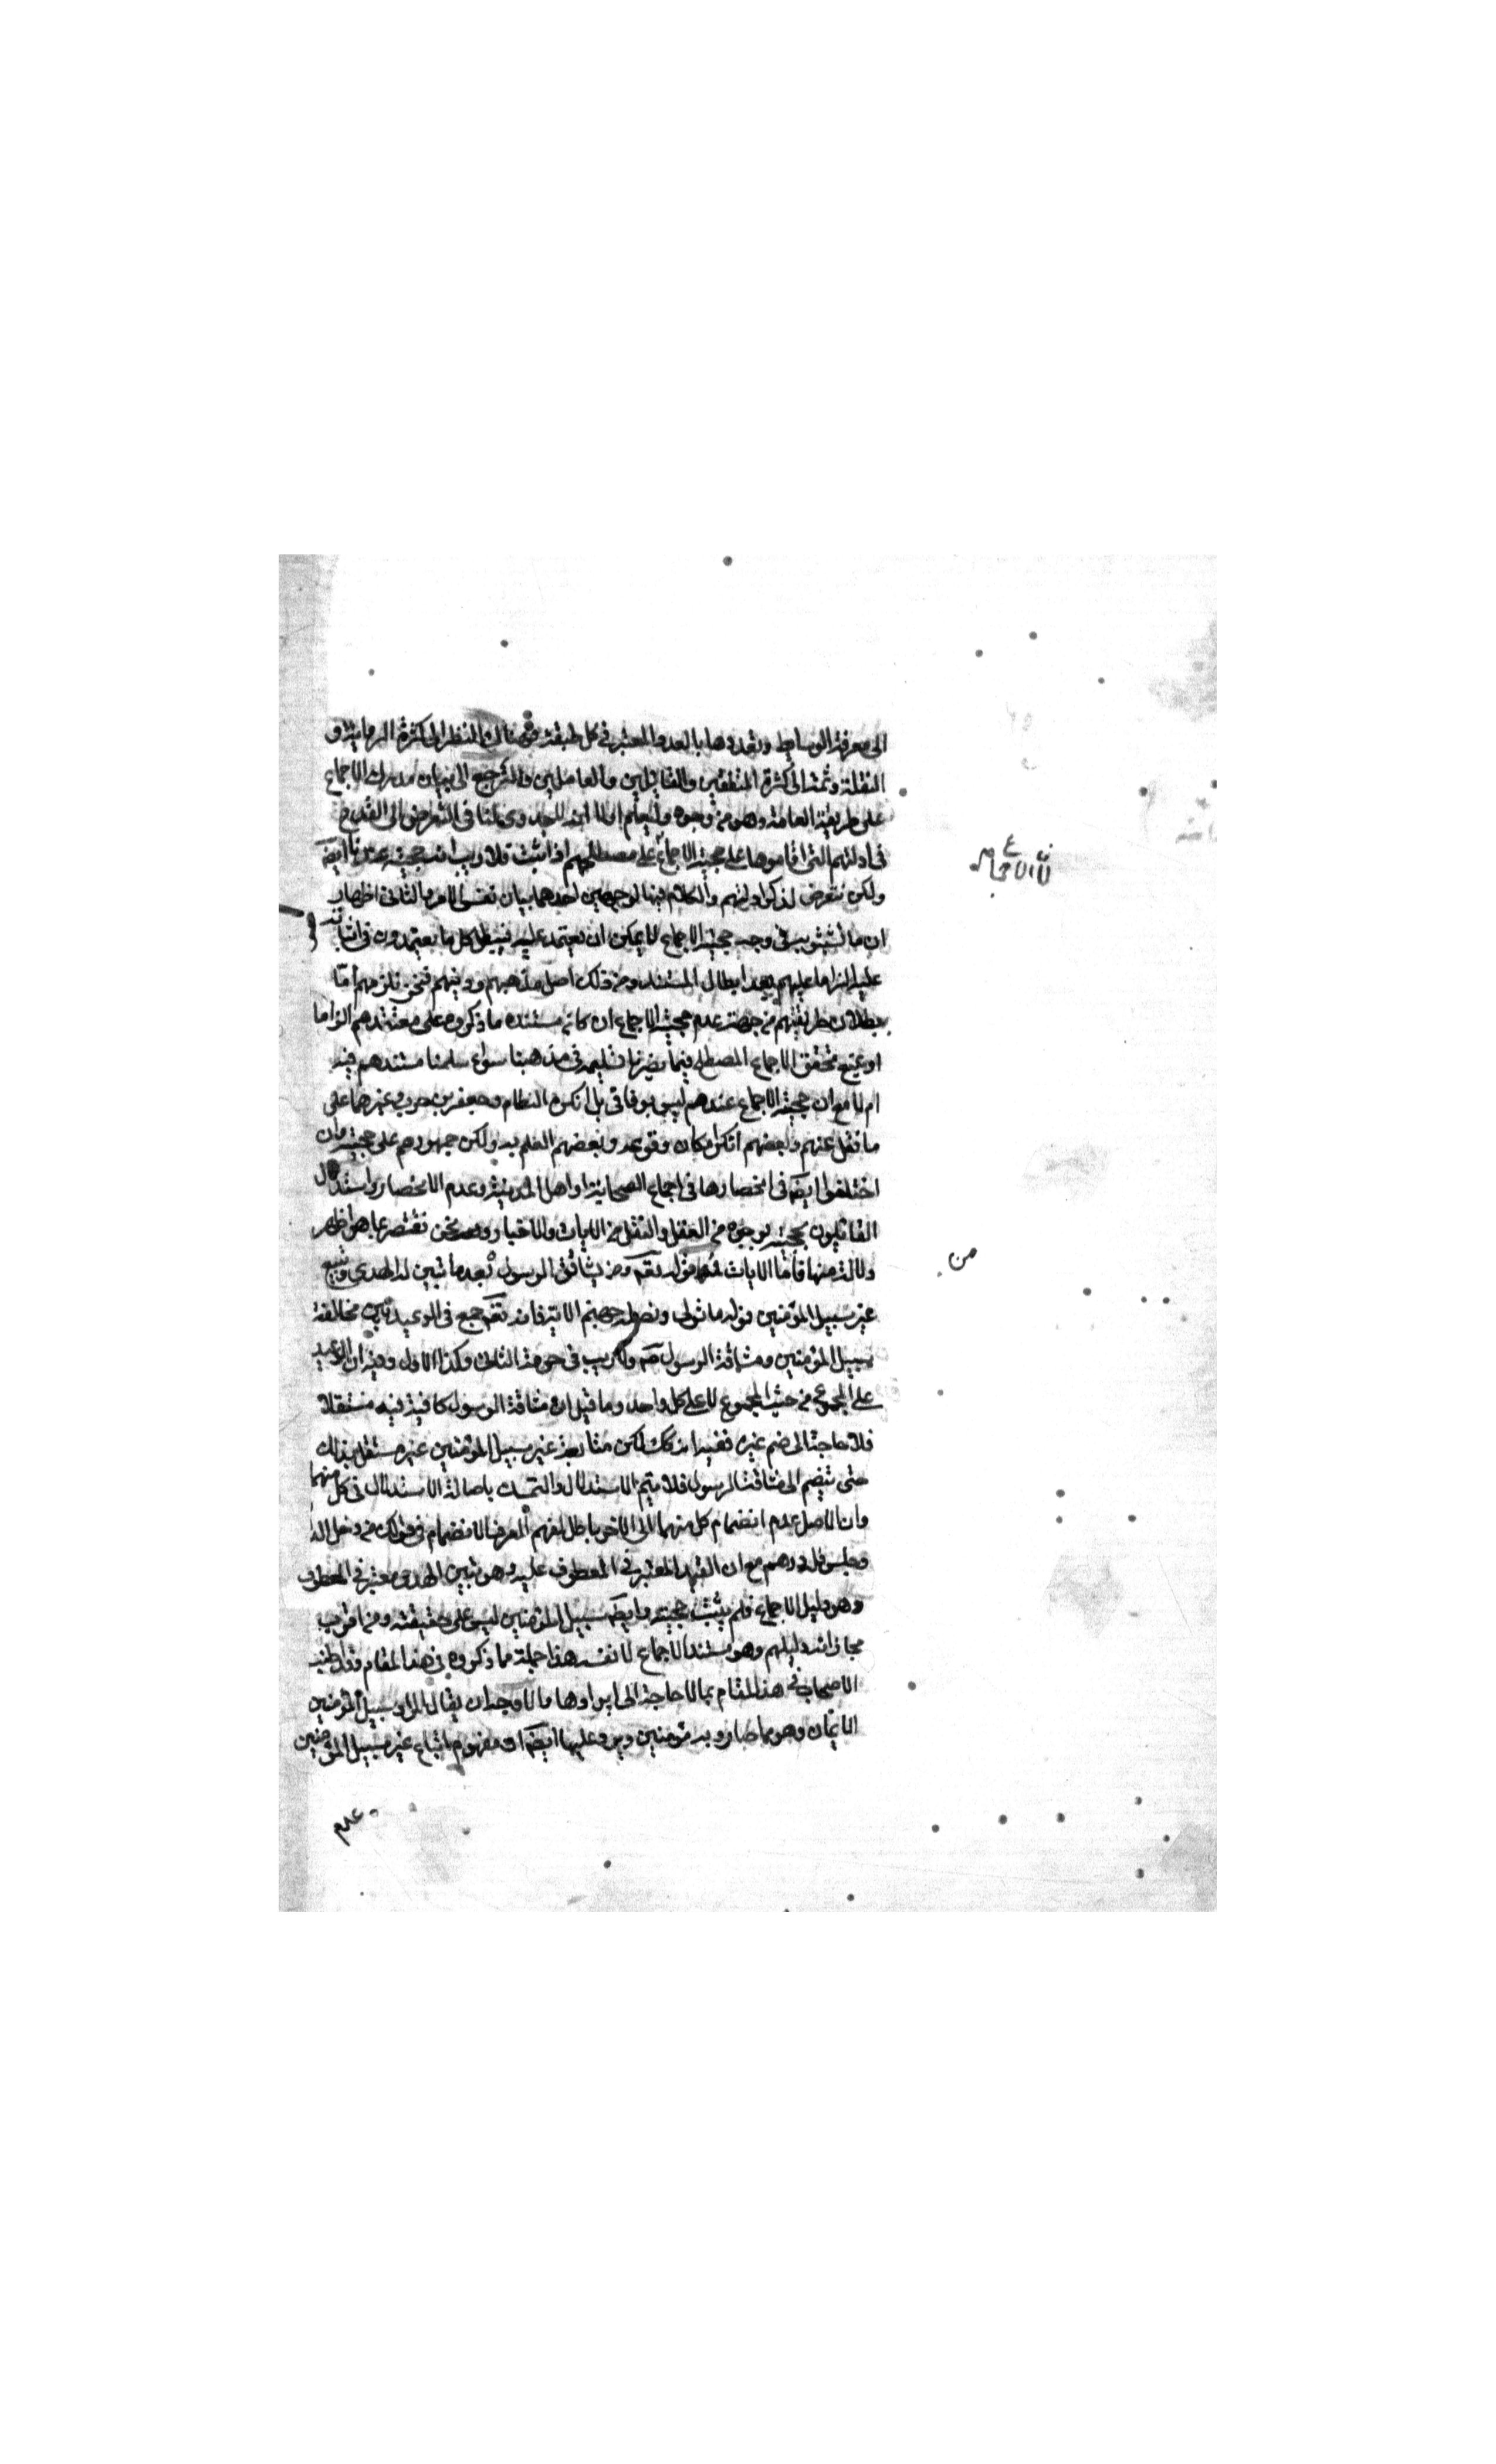 الى معرفة الوسايط وتعددها بالعدد المعتبر فى كل طبقة فهناك النظر الى كثرة الرمانية و
النقلة وثمة الى كثرة المتفقين والقائلين والعاملين ولنرجع الى بيان مدرك الاجماع
على طريقة العامة وهو من وجوه وليعلم اولا انه لا جدوى لنا فى التعرض الى القدح
فى ادلتهم التى اقاموها على حجية الاجماع على مصطلحهم اذا ثبت فلا ريب انه حجية عندنا ايضا
ولكن نتعرض لذكر ادلتهم والكلام فيها لوجهين احدهما بيان نفس الامر والثانى اظهار
ان ما تشبثوا به فى وجه حجية الاجماع لا يمكن ان يعتمد عليه فيبطل كل ما يعتمدون فى اثباته
عليه الزاما عليهم بعد ابطال المستند ومن ذلك اصل مذهبهم ودينهم فنحن نلزمهم امّا
ببطلان طريقتهم من جهة عدم حجية الاجماع ان كان مستنده ما ذكروه على معتقدهم الزاما
او بمنع تحقق الاجماع المصطلح فيما يضرنا تسليمه فى مذهبنا سواء سلمنا مستندهم فيه
ام لا مع ان حجية الاجماع عندهم ليس بوفاقى بل انكره النظام وجعفر بن حرب وغيرهما على
ما نقل عنهم وبعضهم انكر امكان وقوعه وبعضهم العلم به ولكن جمهورهم على حجيته وان
اختلفوا ايضا فى انحصارها فى اجماع الصحابة او اهل المدينة وعدم الانحصار واستدل
القائلون بحجيته بوجوه من العقل والنقل من الايات والاخبار ونحن نقتصر بما هو اظهر
دلالة منها فاما الايات فمنها قوله تعم ومن يشاقق الرسول بعد ما تبين له الهدى ويتبع
غير سبيل المؤمنين نوله ما تولى ونصله جهنم الاية فانه تعم جمع فى الوعيد بين مخالفة
سبيل المؤمنين ومشاقة الرسول ص ولا ريب فى حرمة الثانى وكذا الاول وفيه ان الوعيد
على المجموع من حيث المجموع لا على كل واحد وما قيل ان مشاقة الرسول كافية فيه مستقلا
فلا حاجة الى ضم غيره ففيه انه كك لكن متابعة غير سبيل المؤمنين غير مستقل بذلك
حتى ينضم الى مشاقة الرسول فلا يتم الاستدلال والتمسك باصالة الاستدلال فى كل منهما
وان الاصل عدم انضمام كل منهما الى الاخر باطل لفهم العرف الانضمام فى قولك من دخل الدار
وجلس فله درهم مع ان القيد المعتبر فى المعطوف عليه وهو تبين الهدى معتبر فى المعطوف
وهو دليل الاجماع فلم يثبت حجيته وايضا سبيل المؤمنين ليس على حقيقته ومن اقرب
مجازاته دليلهم وهو مستند الاجماع لا نفسه هذا جملة مما ذكروه فى هذا المقام وقد اطنب
الاصحاب فى هذا المقام بما لا حاجة الى ايرادها والاوجه ان يقال المراد سبيل المؤمنين
الايمان وهو ما صاروا به مؤمنين ويرد عليها ايضا ان مفهوم اتباع غير سبيل المؤمنين
من
عدم